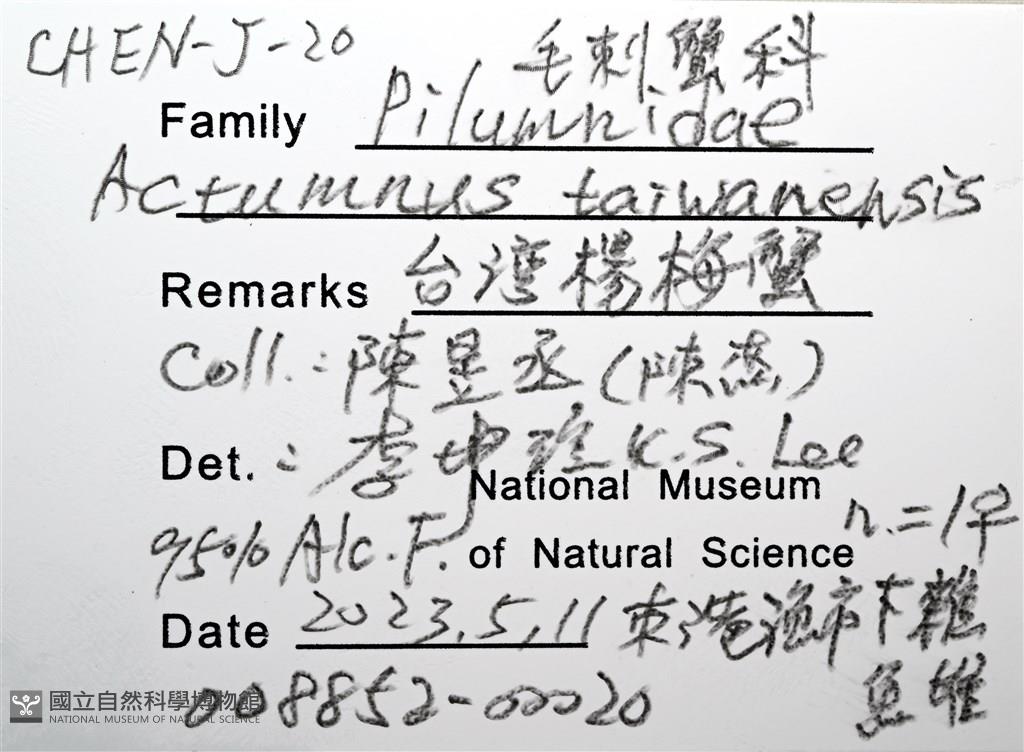 CHEN-J-20
毛刺蟹科
Family Pilumnidae
Actumnus taiwanensis
Remarks 台灣楊梅蟹
Coll.: 陳昱丞(陳杰)
Det.: 李坤 K.S. Lee
National Museum
95% Alc. F. of Natural Science n.=1♀
Date 2023.5,11 東港漁市下雜
魚堆
008852-00020
國立自然科學博物館
NATIONAL MUSEUM OF NATURAL SCIENCE